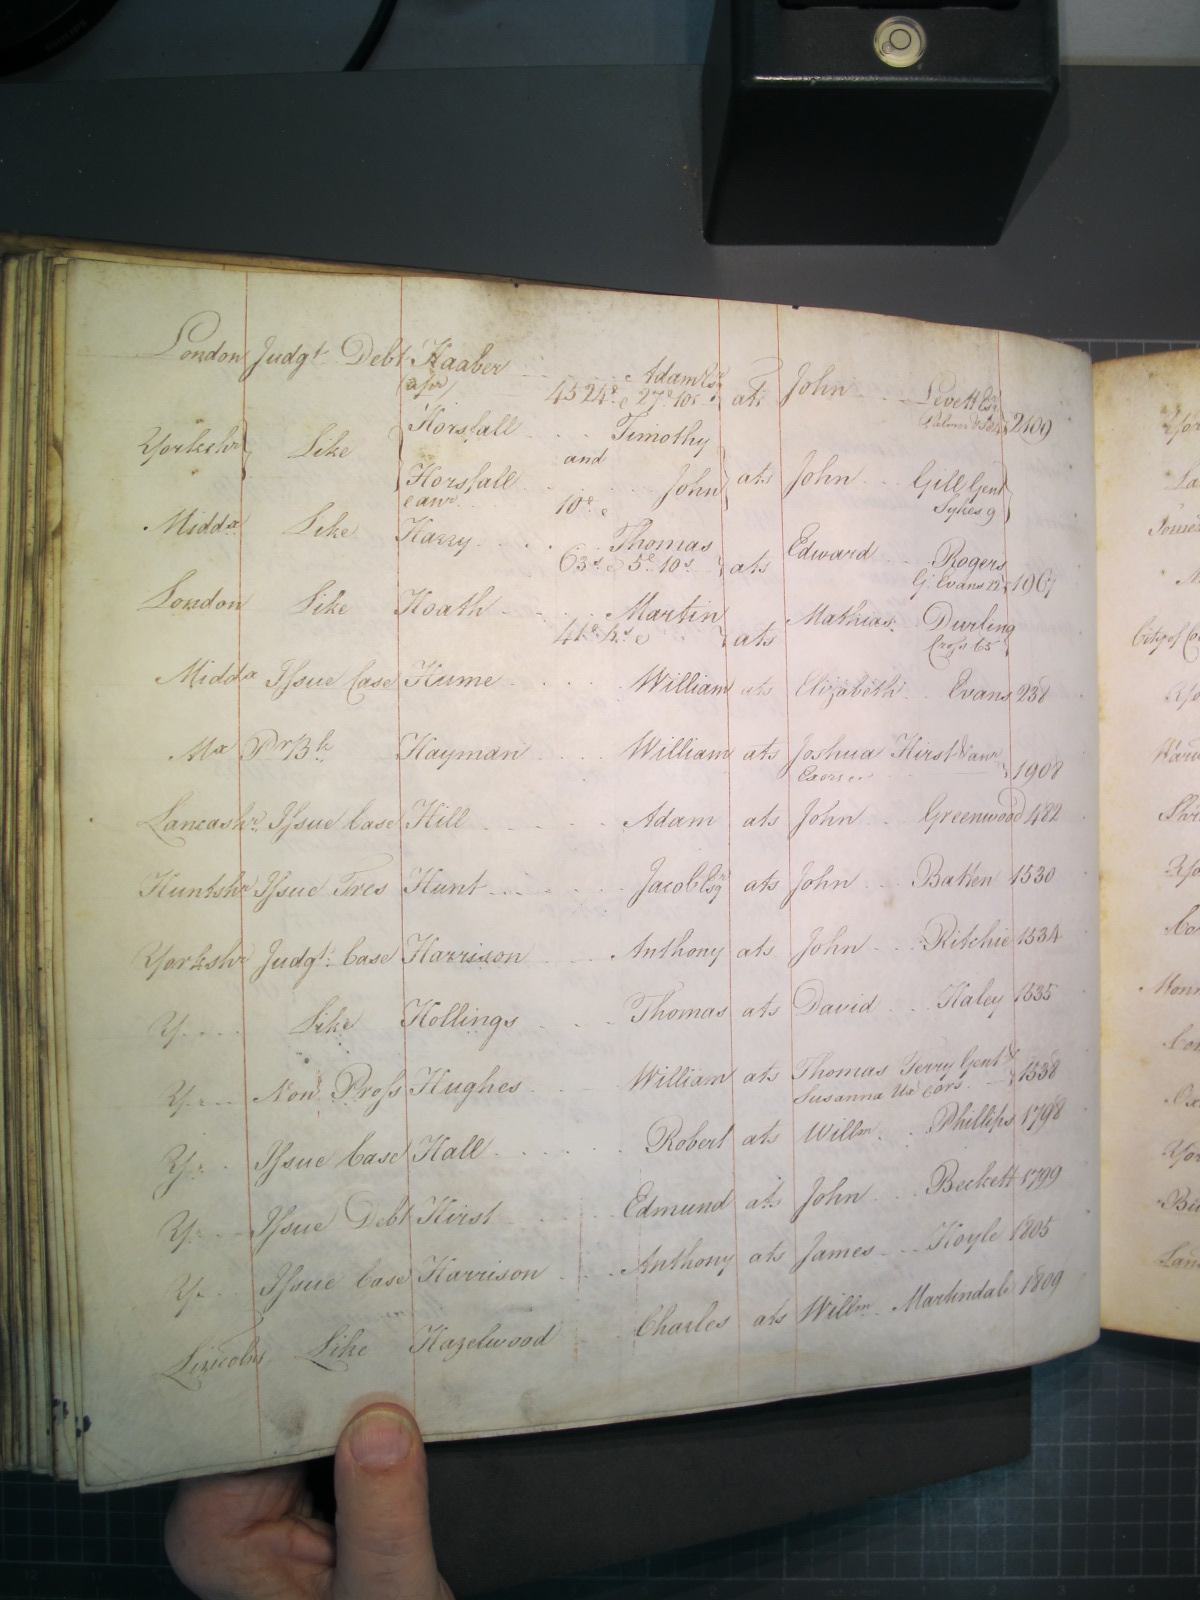 London Judgt. Debt Haaber . . . Adam Esqr ats John . . . Levett Esqr
4524£ 27£ 10s 2109
Yorkshr Like Horsfall . . . Timothy
and
Horsfall . . . John ats John . . . Gill Gent
10£ Sykes 9
Middx Like Harry . . . . Thomas ats Edward . . Rogers
63s 5£ 10s G. Evans 12 1967
London Like Hoath . . . . Martin ats Mathias . Durling
Cross 65
Middx Issue Case Hume . . . . . William ats Elizabeth . . Evans 238
Mx Hayman . . . . William ats Joshua Hirst & anr
Exors 1908
Lancashr. Issue Case Hill . . . . . Adam ats John . . . Greenwood 482
Huntshr Issue Tres Hunt . . . . . Jacob Esqr ats John . . . Batten 1530
Yorkshr Judgt. Case Harrison . . . Anthony ats John . . . Ritchie 1534
Y . . . . Like Hollings . . . Thomas ats David . . . Haley 1535
Y . . . Non Pross Hughes . . . William ats Thomas Terry Gent &
Susanna Ux Exrs. 1538
Y . . . Issue Case Hall . . . . . . Robert ats Willm. . . Phillips 1798
Y . . . Issue Debt Hirst . . . . Edmund ats John . . . Beckett 1799
Y . . . Issue Case Harrison . . . Anthony ats James . . . Hoyle 1805
Lincolns Like Hazelwood . . . Charles ats Willm. Martindale 1809